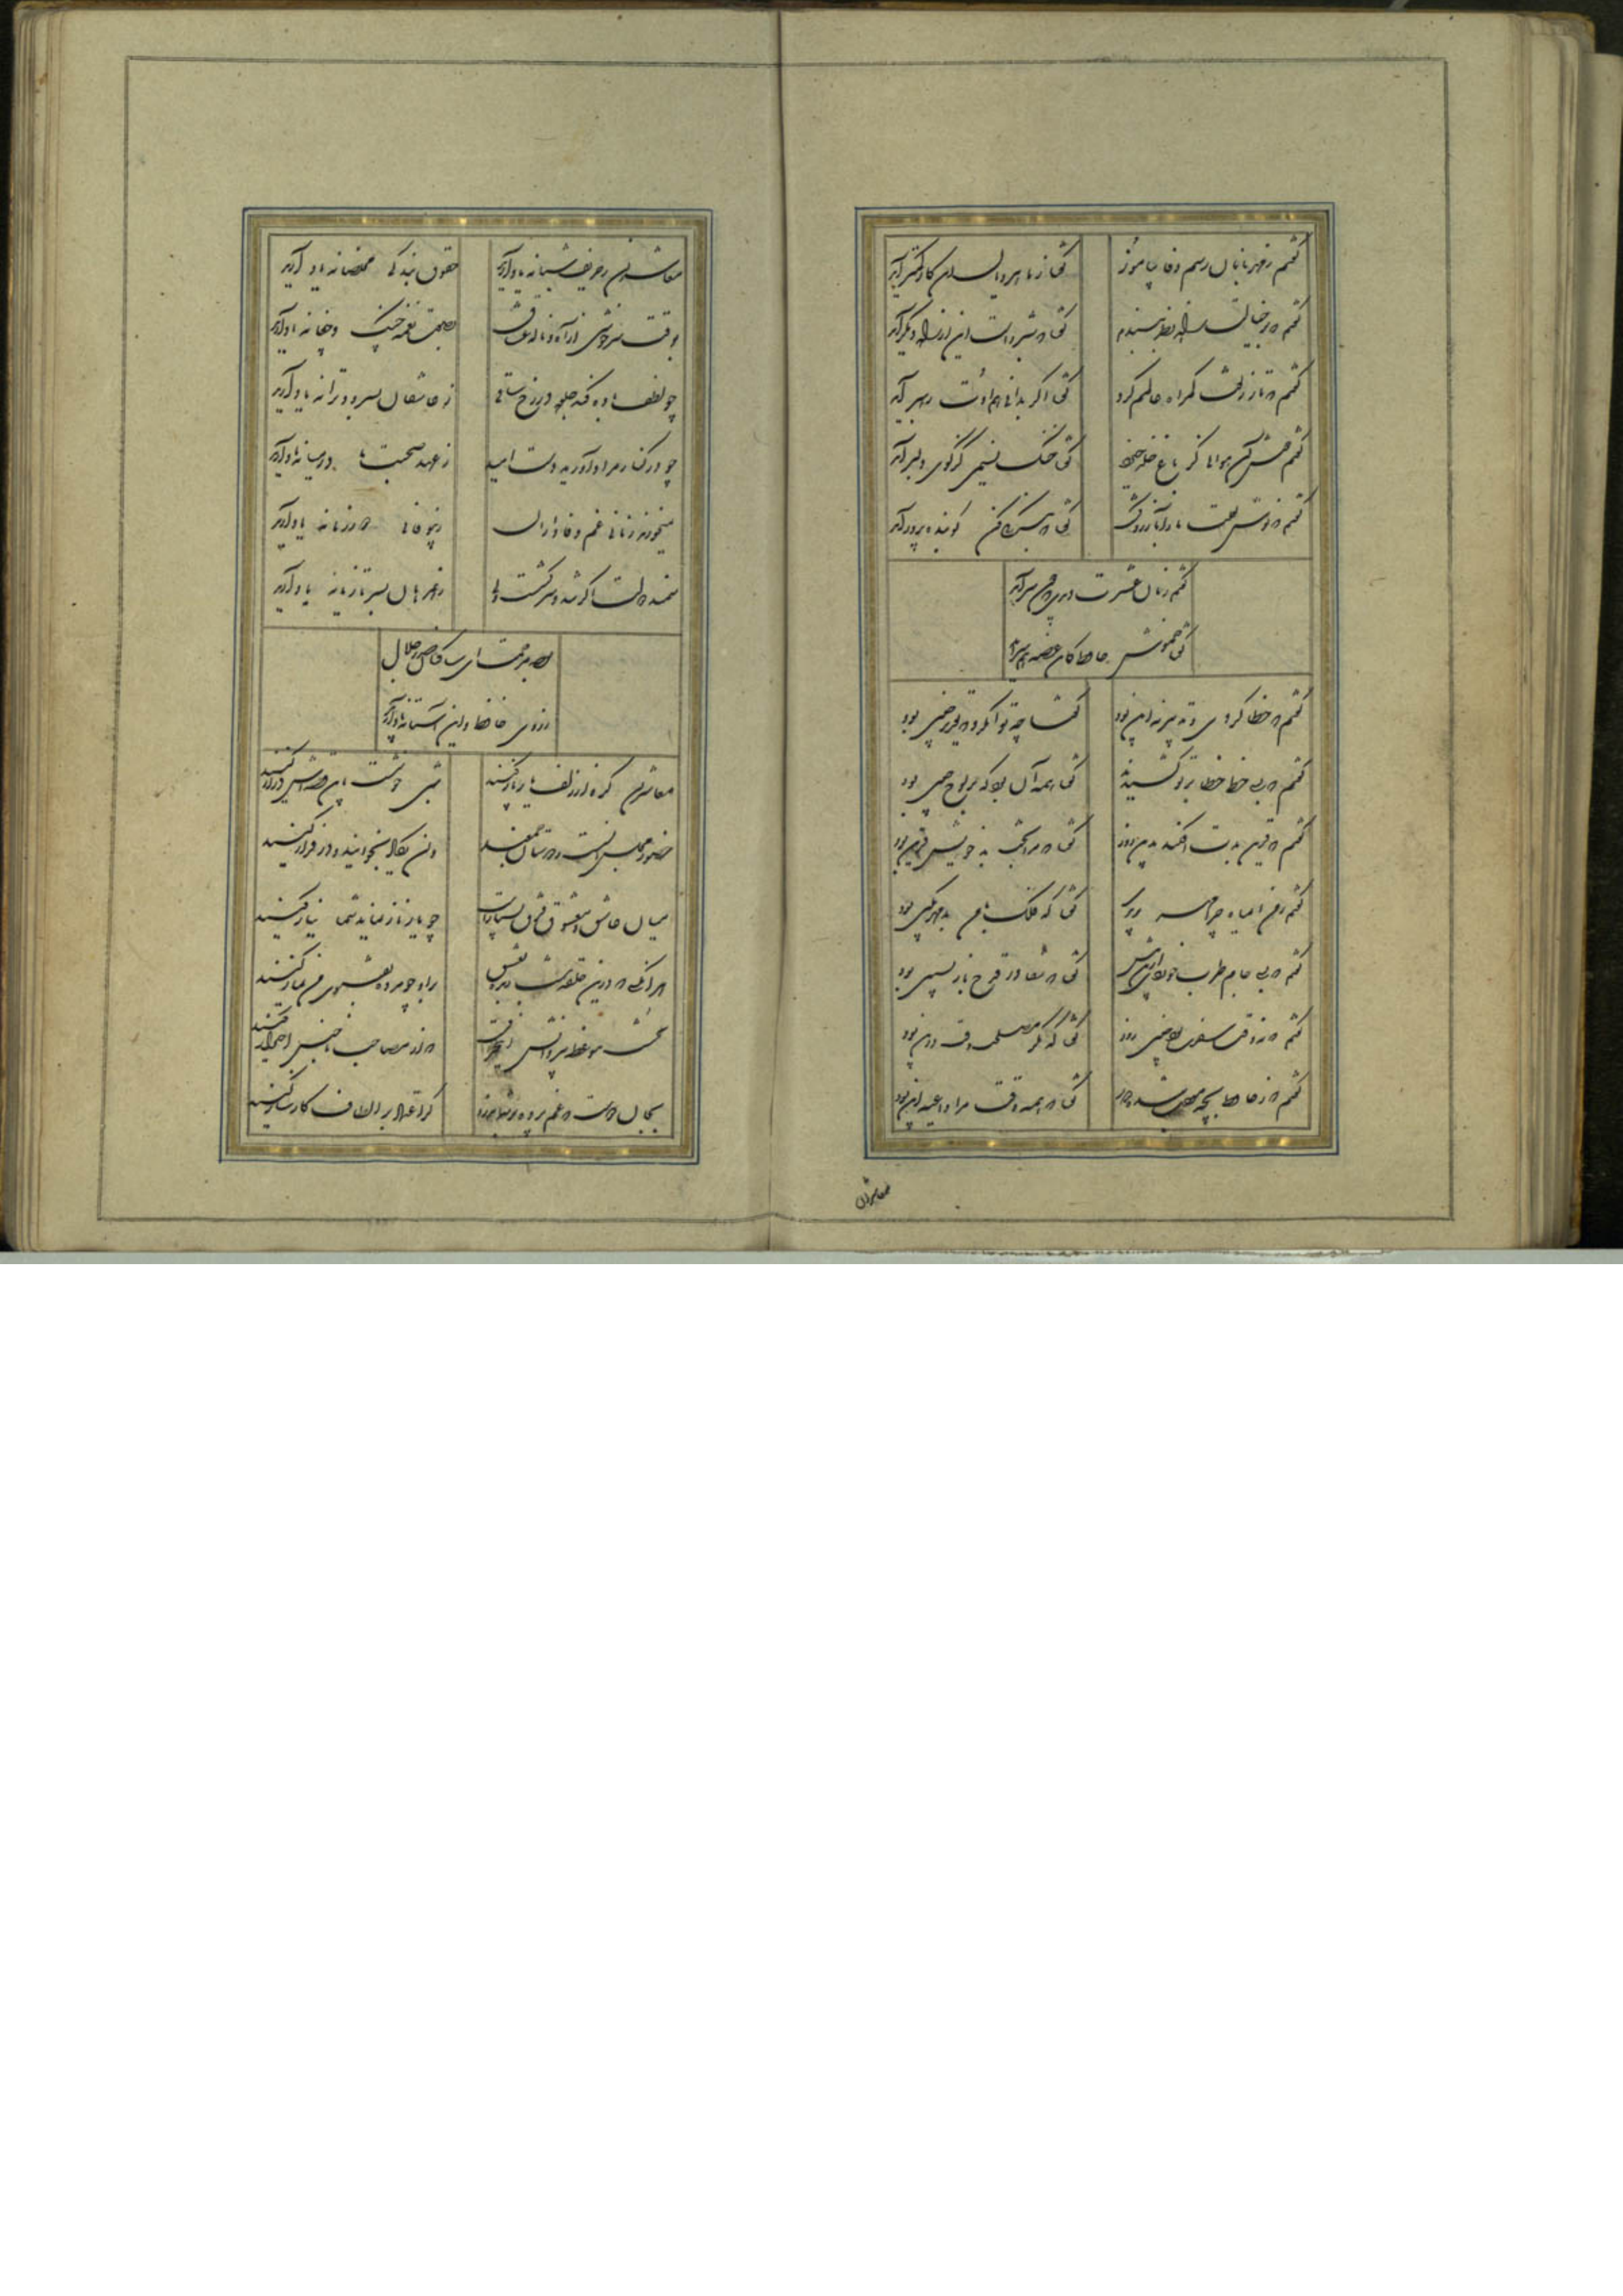 گفتم ز مهربانان رسم وفا بیاموز گفتا ز ماهرویان این کار کمتر آید
گفتم که بر خیالت راه نظر ببندم گفتا که شبروست این از راه دیگر آید
گفتم که زلفت گمراه عالمم کرد گفتا اگر بدانی هم اوت رهبر آید
گفتم خوش آن هوائی کز باغ خلد خیزد گفتا خنک نسیمی کز کوی دلبر آید
گفتم که نوش لعلت ما را بآرزو کشت گفتا تو بندگی کن کو بنده پرور آید
گفتم زمان عشرت دیدی که چون سر آمد
گفتا خموش حافظ کاین غصه هم سر آید
گفتم که خطا کردی و تدبیر نه این بود گفتا چه توان کرد که تقدیر چنین بود
گفتم که بسی خط خطا بر تو کشیدند گفتا همه آن بود که بر لوح جبین بود
گفتم که قرین بدت افکند بدین روز گفتا که مرا بخت بد خویش قرین بود
گفتم ز من ای ماه چرا مهر بریدی گفتا که فلک با من بد مهر بکین بود
گفتم که بسی جام طرب خوردی ازین پیش گفتا که شفا در قدح باز پسین بود
گفتم که نه وقت سفرت بود چنین زود گفتا که مگر مصلحت وقت درین بود
گفتم که ز حافظ بچه حجت شده دور گفتا که همه وقت مرا داعیه این بود
معاشران
معاشران ز حریف شبانه یاد آرید حقوق بندگی مخلصانه یاد آرید
بوقت سرخوشی از آه و ناله عشاق بصوت نغمه چنگ و چغانه یاد آرید
چو لطف باده کند جلوه در رخ ساقی ز عاشقان بسرود و ترانه یاد آرید
چو در کنار مراد آورید دست امید ز عهد صحبت ما در میانه یاد آرید
نمیخورند زمانی غم وفاداران ز بیوفائی دور زمانه یاد آرید
سمند دولت اگر چند سرکشست ولی ز همرهان بسر تازیانه یاد آرید
بوجه مرحمت ای ساکنان صدر جلال
ز روی حافظ و این آستانه یاد آرید
معاشران گره از زلف یار باز کنید شبی خوشست باین قصه‌اش دراز کنید
حضور مجلس انسست و دوستان جمعند و ان یکاد بخوانید و در فراز کنید
میان عاشق و معشوق فرق بسیارست چو یار ناز نماید شما نیاز کنید
هر آنکسی که درین حلقه نیست زنده بعشق بر او چو مرده بفتوی من نماز کنید
نخست موعظه پیر این حرفست که از مصاحب ناجنس احتراز کنید
بجان دوست که غم پرده بر شما ندرد گر اعتماد بر الطاف کارساز کنید